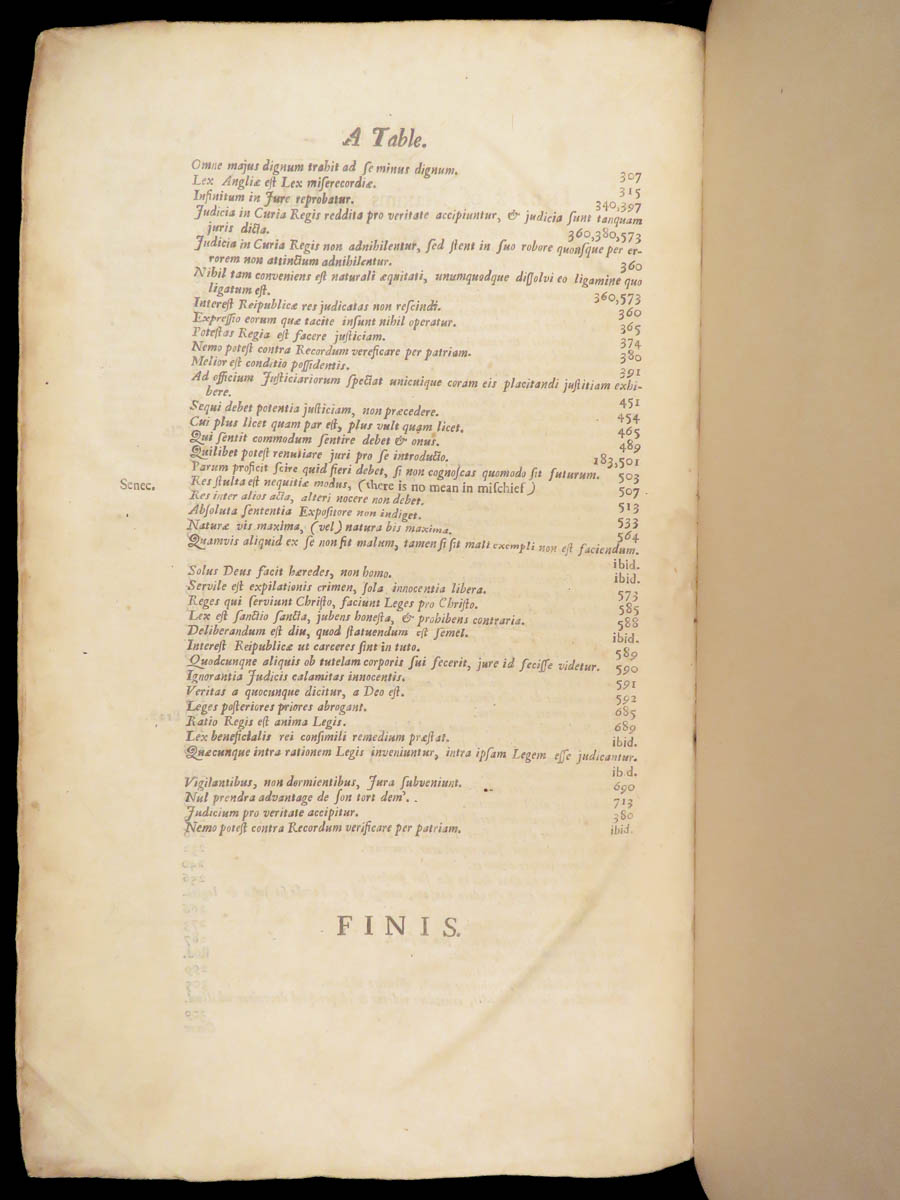 A Table.
Omne majus dignum trahit ad se minus dignum. 307
Lex Angliæ est Lex miserecordiæ. 315
Infinitum in Jure reprobatur. 340,397
Judicia in Curia Regis reddita pro veritate accipiuntur, & judicia sunt tanquam
juris dicta. 360,380,573
Judicia in Curia Regis non adnihilentur, sed stent in suo robore quousque per er-
rorem non attinctum adnihilentur. 360
Nihil tam conveniens est naturali æquitati, unumquodque dissolvi eo ligamine quo
ligatum est. 360,573
Interest Reipublicæ res judicatas non rescindi. 360
Expressio eorum quæ tacite insunt nihil operatur. 365
Potestas Regia est facere justiciam. 374
Nemo potest contra Recordum vereficare per patriam. 380
Melior est conditio possidentis. 391
Ad officium Justiciariorum spectat unicuique coram eis placitandi justitiam exhi-
bere. 451
Sequi debet potentia justiciam, non præcedere. 454
Cui plus licet quam par est, plus vult quam licet. 465
Qui sentit commodum sentire debet & onus. 489
Quilibet potest renuliare juri pro se introductio. 183,501
Parum proficit scire quid fieri debet, si non cognoscas quomodo sit futurum. 503
Senec. Res stulta est nequitiæ modus, (there is no mean in mischief) 507
Res inter alios acta, alteri nocere non debet. 513
Absoluta sententia Expositore non indiget. 533
Naturæ vis maxima, (vel) natura bis maxima. 564
Quamvis aliquid ex se non sit malum, tamen si sit mali exempli non est faciendum.
ibid.
Solus Deus facit hæredes, non homo. ibid.
Servile est expilationis crimen, sola innocentia libera. 573
Reges qui serviunt Christo, faciunt Leges pro Christo. 585
Lex est sanctio sancta, jubens honesta, & prohibens contraria. 588
Deliberandum est diu, quod statuendum est semel. ibid.
Interest Reipublicæ ut carceres sint in tuto. 589
Quodcunqne aliquis ob tutelam corporis sui fecerit, jure id fecisse videtur. 590
Ignorantia Judicis calamitas innocentis. 591
Veritas a quocunque dicitur, a Deo est. 592
Leges posteriores priores abrogant. 685
Ratio Regis est anima Legis. 689
Lex beneficialis rei consimili remedium præstat. ibid.
Quæcunque intra rationem Legis inveniuntur, intra ipsam Legem esse judicantur.
ibid.
Vigilantibus, non dormientibus, Jura subveniunt. 690
Nul prendra advantage de son tort dem'. 713
Judicium pro veritate accipitur. 380
Nemo potest contra Recordum verificare per patriam. ibid.
FINIS.